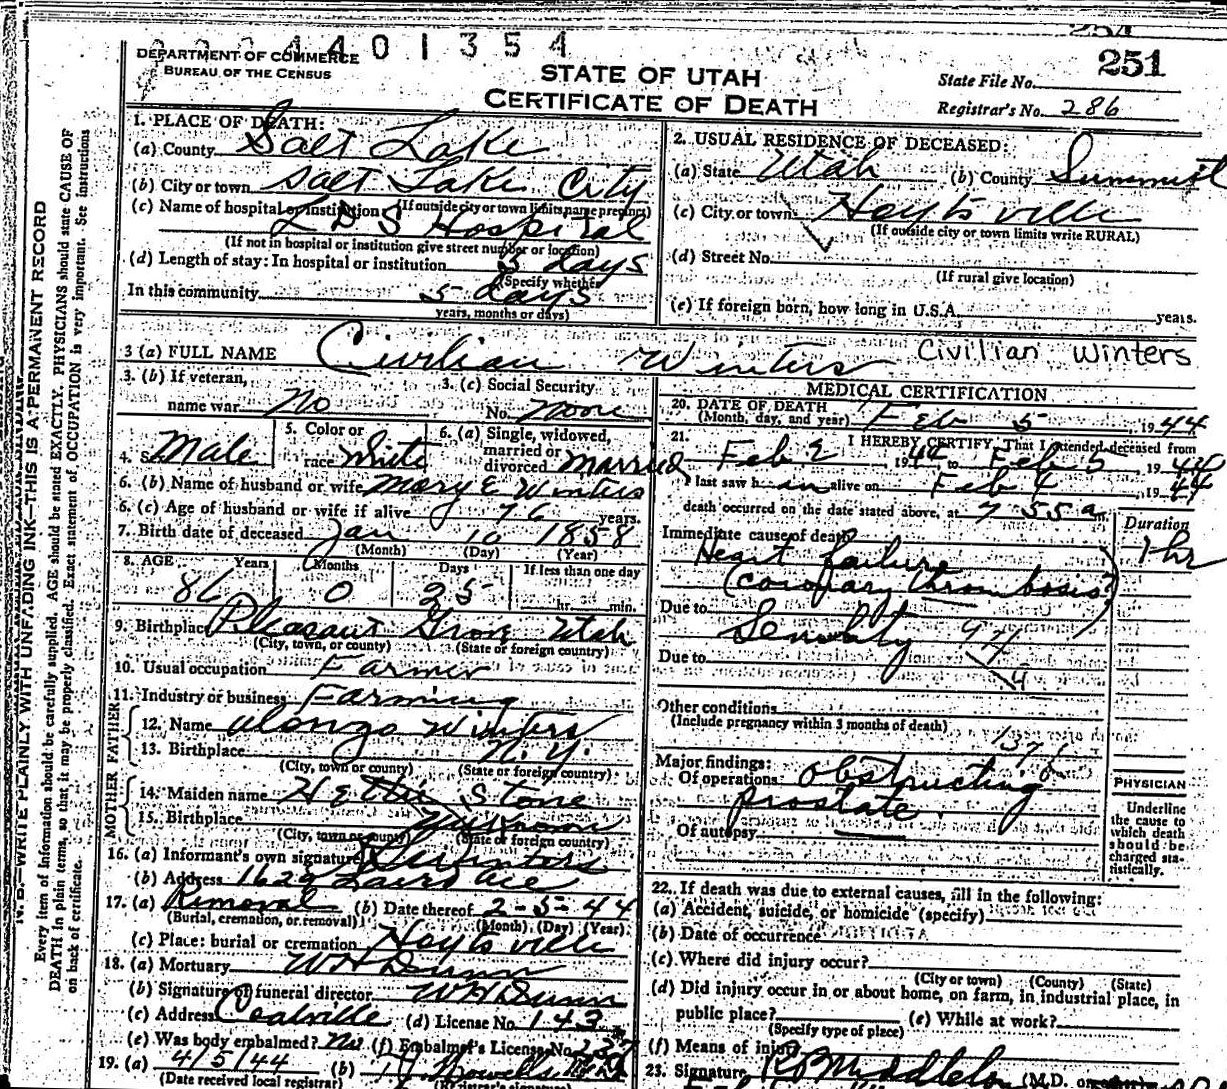 254
4401354
251
DEPARTMENT OF COMMERCE
BUREAU OF THE CENSUS
STATE OF UTAH
CERTIFICATE OF DEATH
State File No.
Registrar's No. 286
N. B.—WRITE PLAINLY WITH UNFADING INK—THIS IS A PERMANENT RECORD
Every item of information should be carefully supplied. AGE should be stated EXACTLY. PHYSICIANS should state CAUSE OF
DEATH in plain terms, so that it may be properly classified. Exact statement of OCCUPATION is very important. See instructions
on back of certificate.
1. PLACE OF DEATH:
(a) County Salt Lake
(b) City or town Salt Lake City
(If outside city or town limits name precinct)
(c) Name of hospital or institution
LDS Hospital
(If not in hospital or institution give street number or location)
(d) Length of stay: In hospital or institution days
(Specify whether
In this community 5 days
years, months or days)
2. USUAL RESIDENCE OF DECEASED:
(a) State Utah (b) County Summit
(c) City or town Hoytsville
(If outside city or town limits write RURAL)
(d) Street No.
(If rural give location)
(e) If foreign born, how long in U.S.A. years.
3 (a) FULL NAME Civilian Winters Civilian Winters
3. (b) If veteran,
name war No
3. (c) Social Security
No. None
4. Sex Male
5. Color or
race White
6. (a) Single, widowed,
married or
divorced married
6. (b) Name of husband or wife Mary E Winters
6. (c) Age of husband or wife if alive 76 years.
7. Birth date of deceased Jan 10 1858
(Month) (Day) (Year)
8. AGE Years Months Days If less than one day
86 0 25 hr. min.
9. Birthplace Pleasant Grove Utah
(City, town, or county) (State or foreign country)
10. Usual occupation Farmer
11. Industry or business Farming
FATHER
12. Name Alonzo Winters
13. Birthplace N.Y.
(City, town or county) (State or foreign country)
MOTHER
14. Maiden name Hettie Stone
15. Birthplace Unknown
(City, town or county) (State or foreign country)
16. (a) Informant's own signature Winters
(b) Address Ave
17. (a) Removal (b) Date thereof 2-5-44
(Burial, cremation, or removal) (Month) (Day) (Year)
(c) Place: burial or cremation Hoytsville
18. (a) Mortuary WH Dunn
(b) Signature of funeral director WH Dunn
(c) Address Coalville (d) License No. 143
(e) Was body embalmed? (f) Embalmer's License No.
19. (a) 4/5/44 (b)
(Date received local registrar) (Registrar's signature)
MEDICAL CERTIFICATION
20. DATE OF DEATH
(Month, day, and year) Feb 5, 1944
21. I HEREBY CERTIFY, That I attended deceased from
Feb 2, 1944 to Feb 5, 1944
I last saw him alive on Feb 4, 1944
death occurred on the date stated above, at 7 55 a
Duration
Immediate cause of death
Heart failure 1 hr
(coronary thrombosis?)
Due to
Senility
Due to
Other conditions
(Include pregnancy within 3 months of death)
Major findings:
Of operations obstructing
prostate.
Of autopsy
PHYSICIAN
Underline
the cause to
which death
should be
charged sta-
tistically.
22. If death was due to external causes, fill in the following:
(a) Accident, suicide, or homicide (specify)
(b) Date of occurrence
(c) Where did injury occur?
(City or town) (County) (State)
(d) Did injury occur in or about home, on farm, in industrial place, in
public place? (e) While at work?
(Specify type of place)
(f) Means of injury
23. Signature Middleton (M.D. or other)